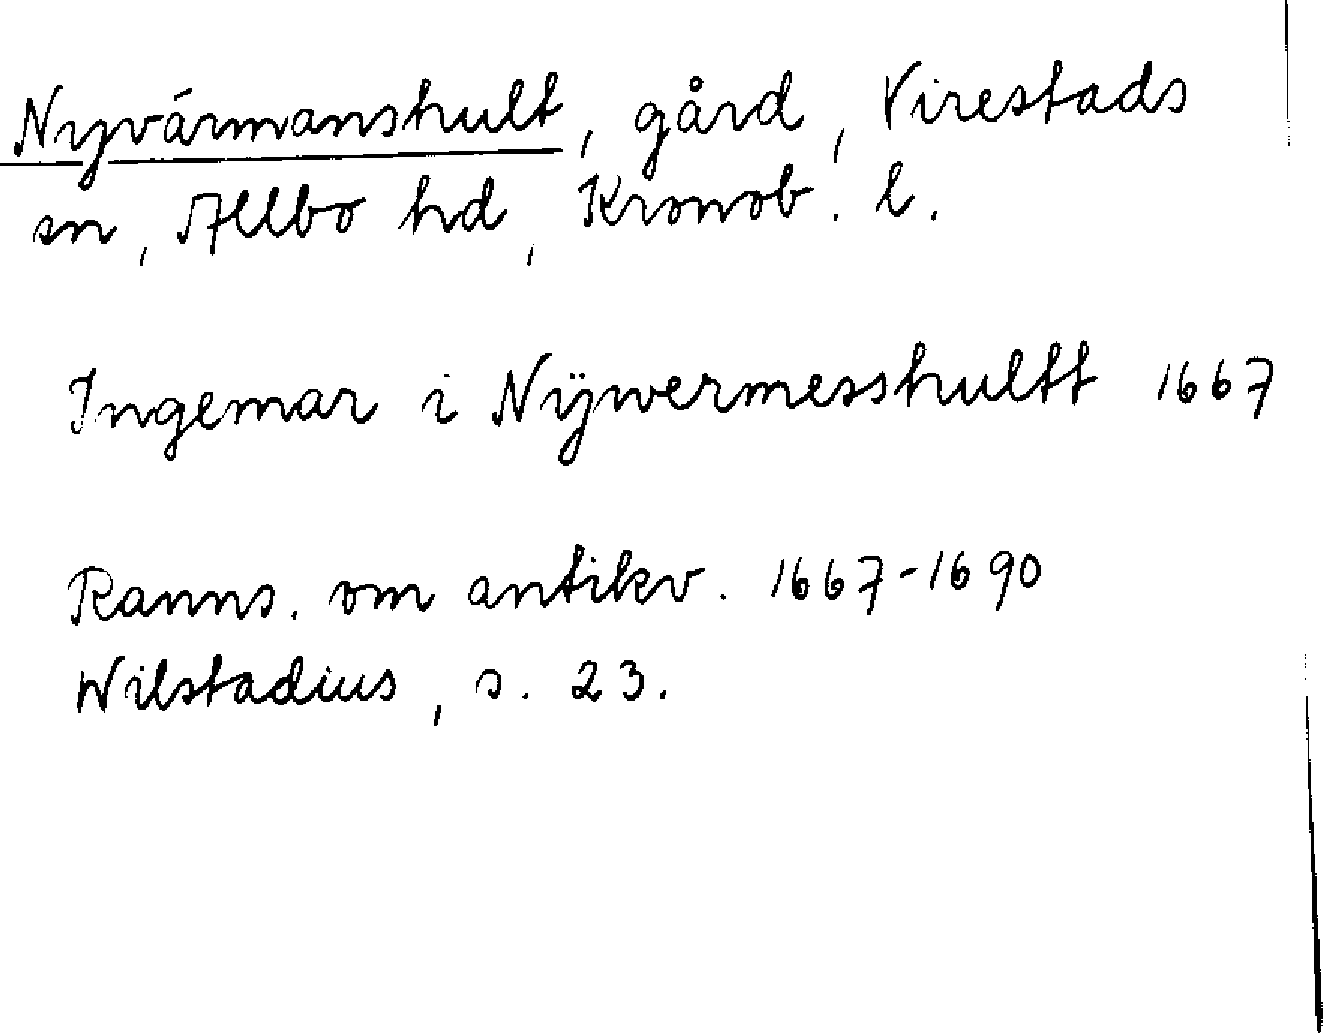 Nyvármanshult, gård, Virestads
sn, Allbo hd, Kronob. l.
Ingemar i Nÿwermesshultt 1667
Ranns. om antikv. 1667-1690
Wilstadius, s. 23.